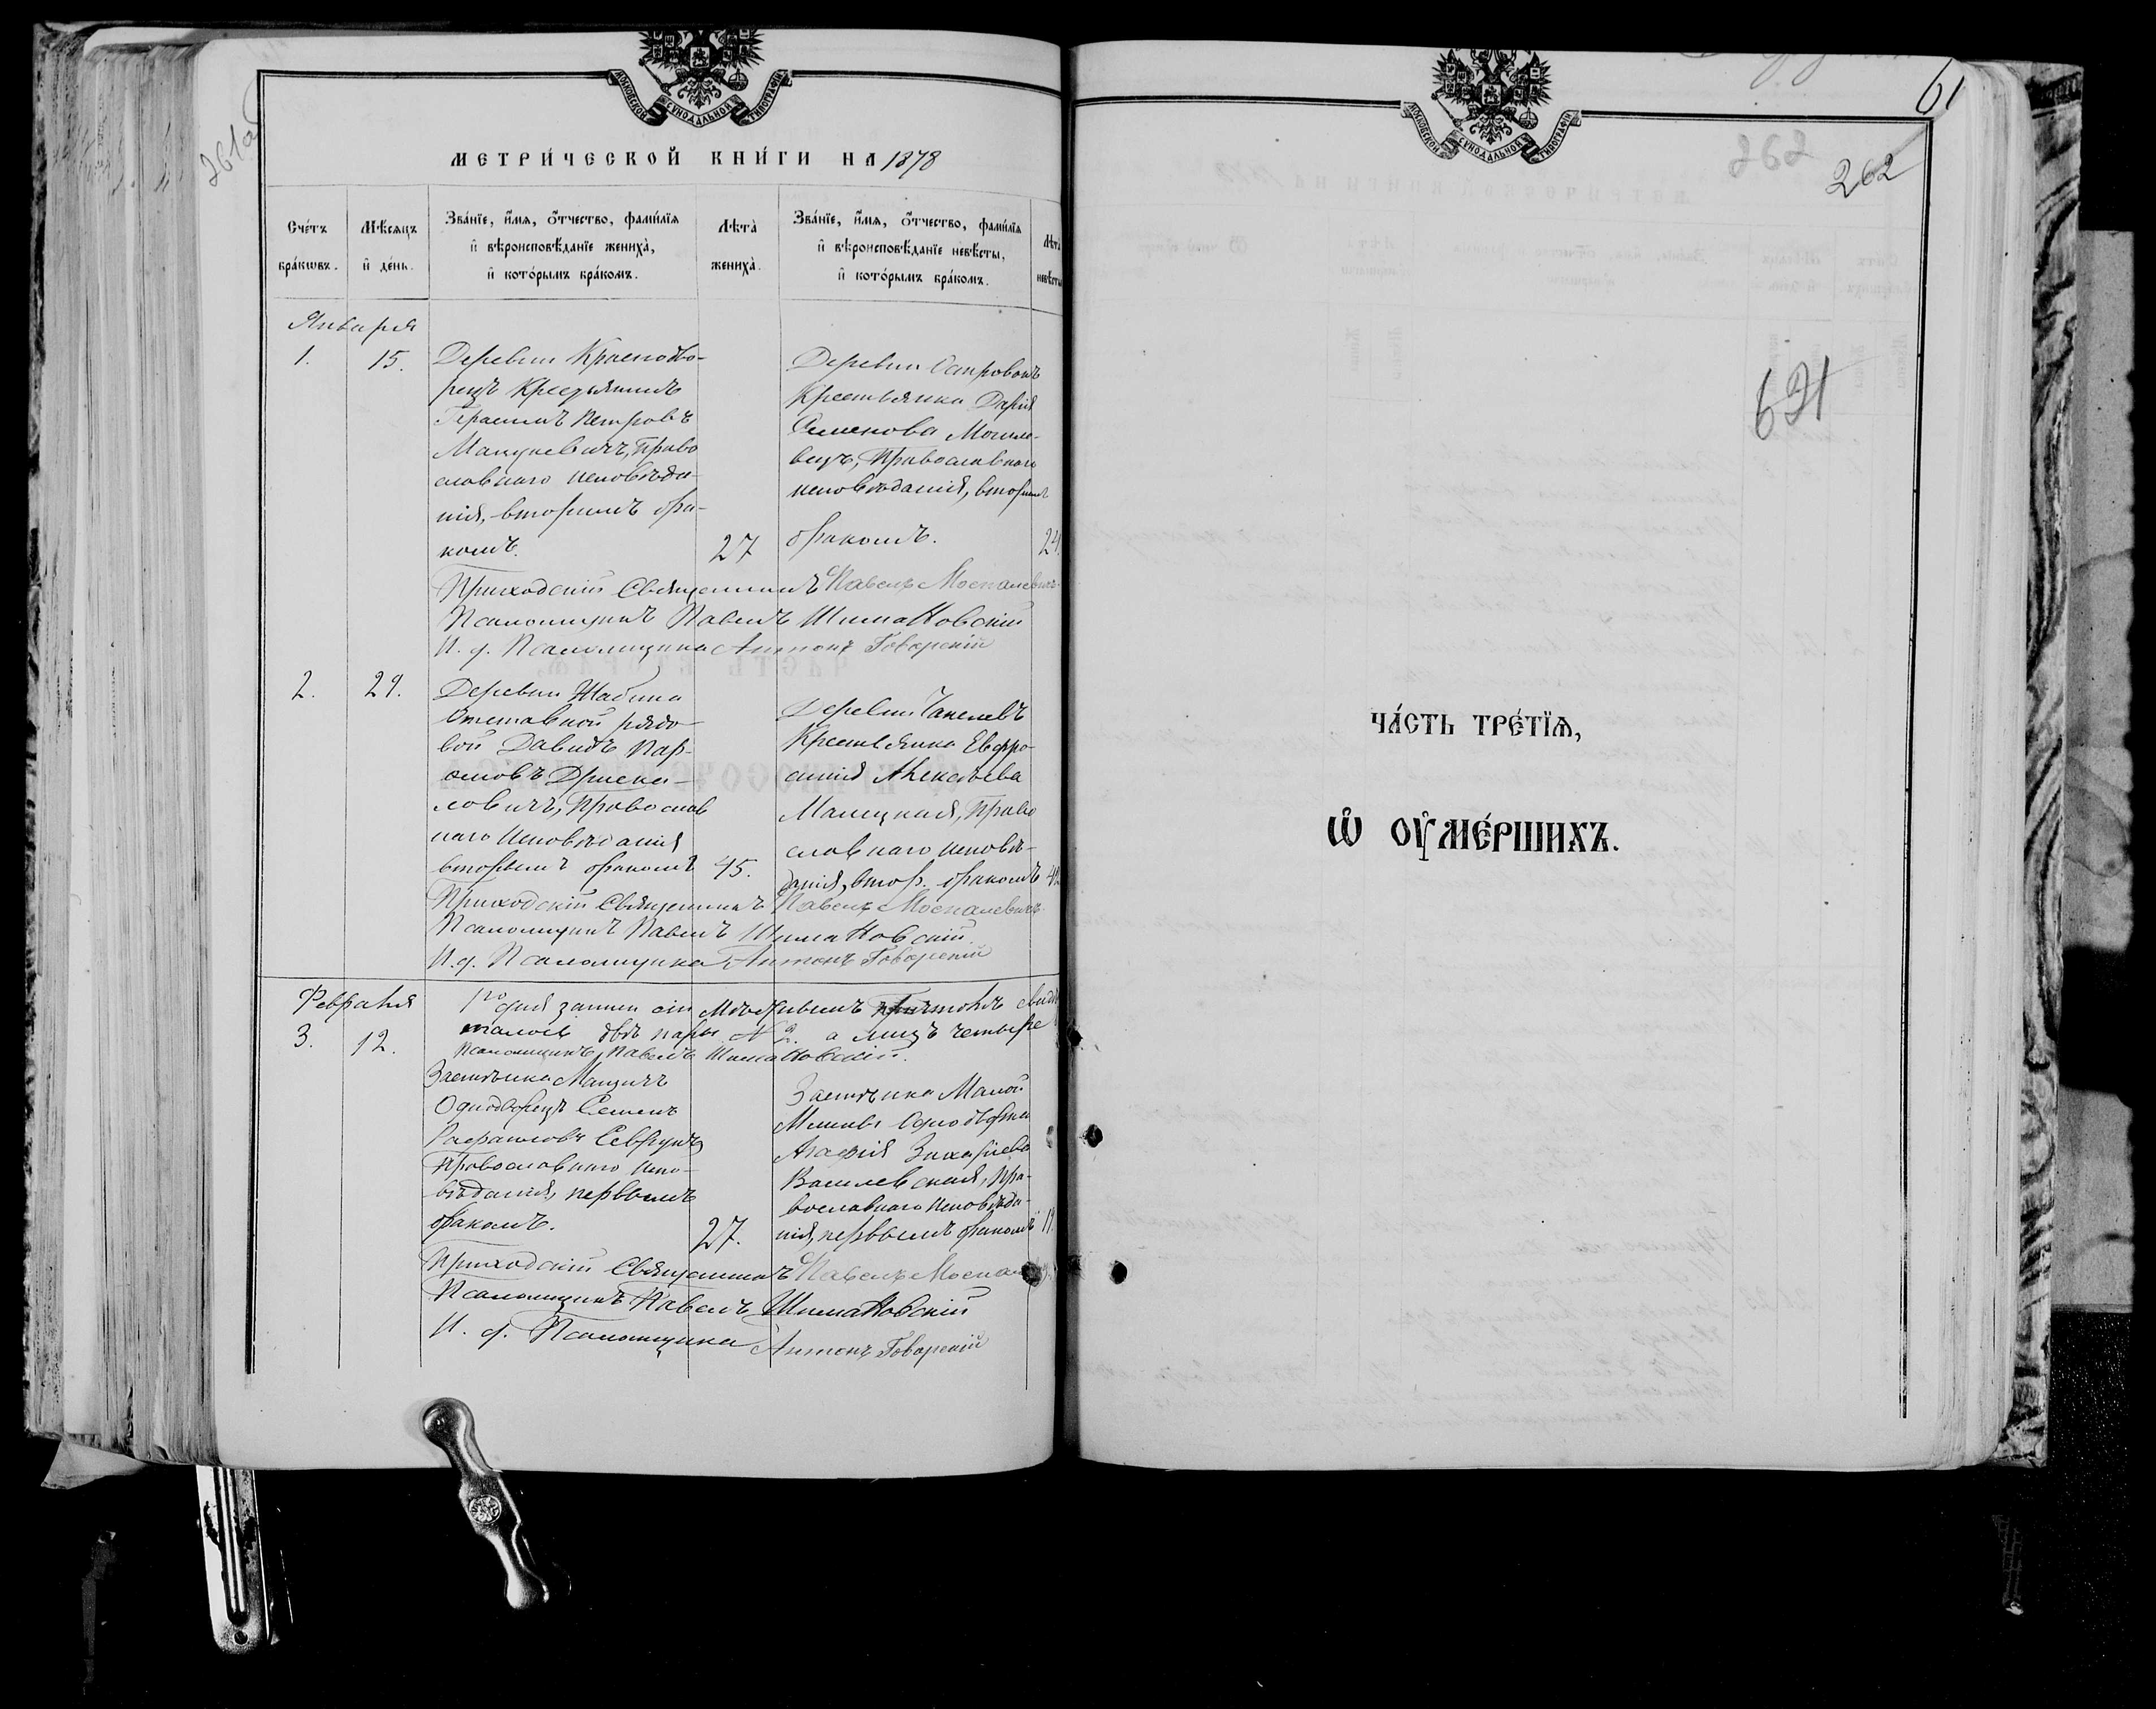 МОСКОВСКОЙ СУНОДАЛЬНОЙ ТИПОГРАФІИ
МЕТРИ́ЧЕСКОЙ КНИ́ГИ НА 1878
Сче́тъ бра́кωвъ.
Мѣ́сяцъ и҆ де́нь.
Зва́нїе, и҆́мѧ, ѻ҆́тчество, фами́лїѧ
и҆ вѣроисповѣ́данїе жениха̀,
и҆ кото́рымъ бра́комъ.
Лѣта̀ жениха̀.
Зва́нїе, и҆́мѧ, ѻ҆́тчество, фами́лїѧ
и҆ вѣроисповѣ́данїе невѣ́сты,
и҆ кото́рымъ бра́комъ.
Лѣта̀
невѣ́сты
Января
1. 15.
Деревни Краснодво-
рецъ Крестьянинъ
Герасимъ Петровъ
Мацукевичъ, Право
славнаго исповѣда-
нія, вторымъ бра-
комъ. 27
Деревни Островокъ
Крестьянка Дарія
Семенова Могиле-
вецъ, Православнаго
исповѣданія, вторымъ
бракомъ.
Приходскій Священникъ Павелъ Москалевичъ
Псаломщикъ Павелъ Шимановскій
И. д. Псаломщика Антонъ Говорскій
2. 29.
Деревни Жабина
Отставной рядо-
вой Давидъ Кар-
ловичъ, Православ
наго исповѣданія
вторымъ бракомъ 45.
Крестьянка Евфро-
синія Алексѣева
Малецкая, Право
славнаго исповѣ-
данія, втор. бракомъ
Приходскій Священникъ Павелъ Москалевичъ
Псаломщикъ Павелъ Шимановскій
И. д. Псаломщика Антонъ Говорскій
Февраля
двѣ пары № 2. а лицъ четыре
Псаломщикъ Павелъ Шимановскій.
3. 12.
Однодворецъ Семенъ
Православнаго испо-
вѣданія, первымъ
бракомъ. 27.
Застѣнка Малой
Агафія Захаріева
Василевская, Пра-
вославнаго исповѣда-
нія, первымъ бракомъ
Приходскій Священникъ Павелъ
Псаломщикъ Павелъ Шимановскій
И. д. Псаломщика Антонъ Говорскій
МОСКОВСКОЙ СУНОДАЛЬНОЙ ТИПОГРАФІИ
61
262
262
621
ЧА́СТЬ ТРЕ́ТЇѦ,
Ѡ҆ ОУ҆МЕ́РШИХЪ.